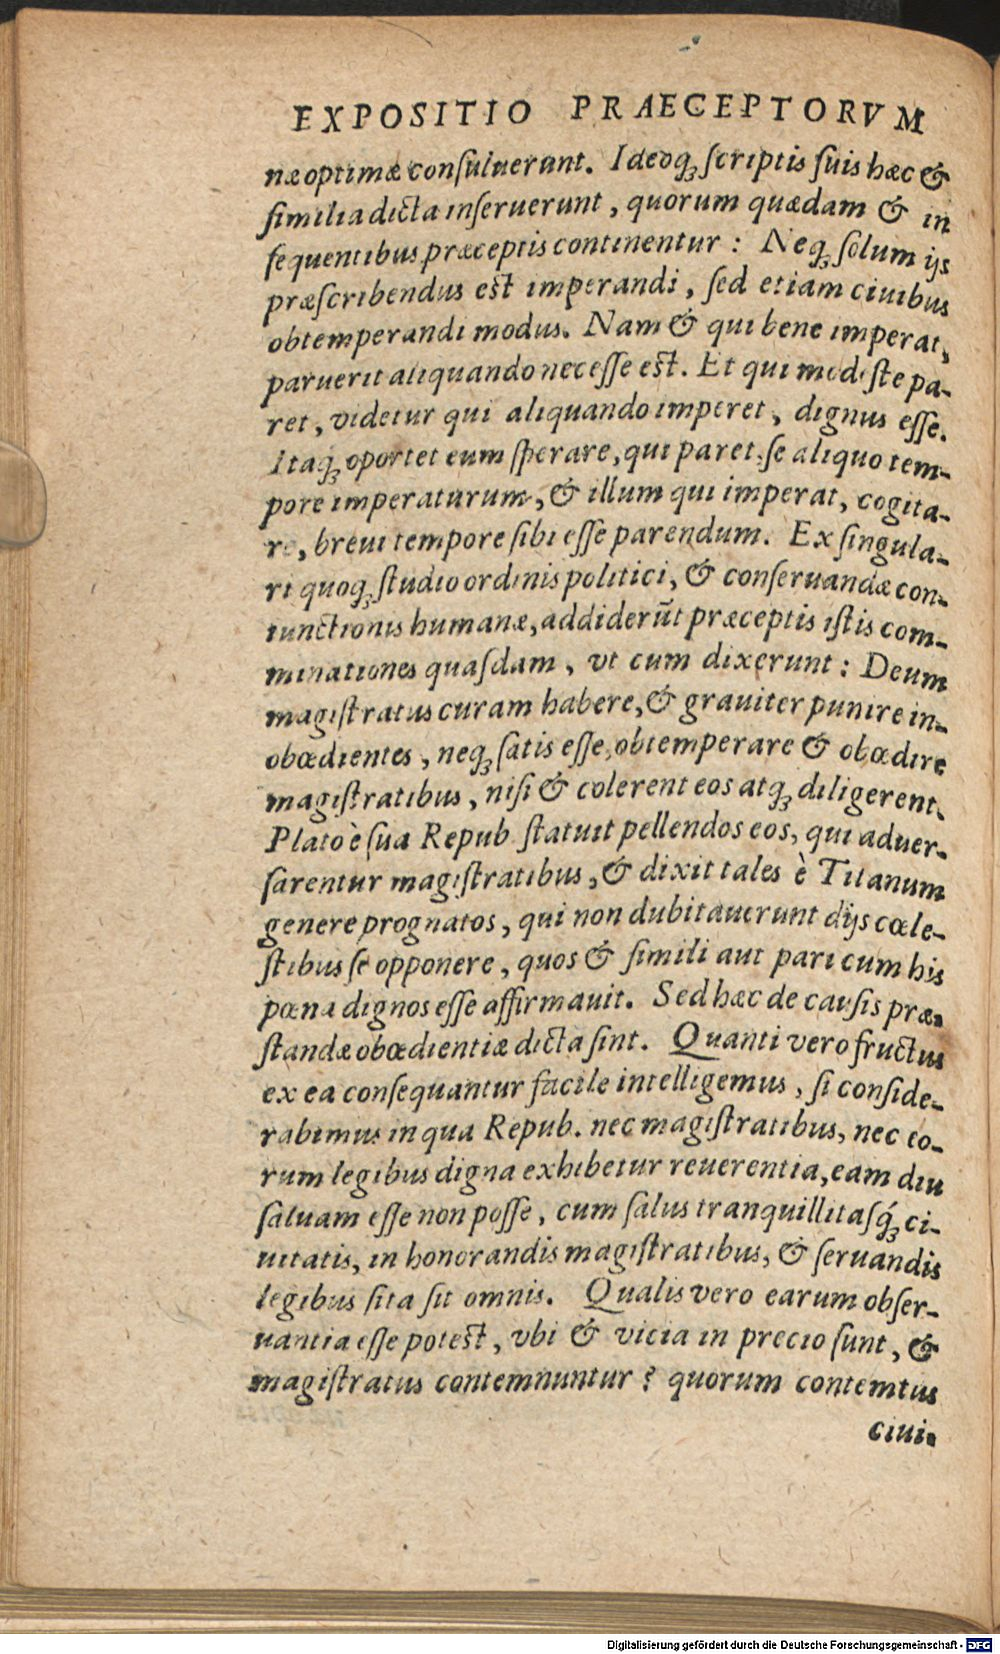 EXPOSITIO PRAECEPTORVM
næ optimæ consuluerunt. Ideoq́ꝫ scriptis suis hæc &
similia dicta inseruerunt, quorum quædam & in
sequentibus præceptis continentur: Neqꝫ solum ijs
præscribendus est imperandi, sed etiam ciuibus
obtemperandi modus. Nam & qui bene imperat,
paruerit aliquando necesse est. Et qui modeste pa-
ret, videtur qui aliquando imperet, dignus esse.
Itaq́ꝫ oportet eum sperare, qui paret, se aliquo tem-
pore imperaturum, & illum qui imperat, cogita-
re, breui tempore sibi esse parendum. Ex singula-
ri quoqꝫ studio ordinis politici, & conseruandæ con-
iunctionis humanæ, addiderũt præceptis istis com-
minationes quasdam, vt cum dixerunt: Deum
magistratus curam habere, & grauiter punire in-
obœdientes, neqꝫ satis esse, obtemperare & obœdire
magistratibus, nisi & colerent eos atqꝫ diligerent.
Plato è sua Repub statuit pellendos eos, qui aduer-
sarentur magistratibus, & dixit tales è Titanum
genere prognatos, qui non dubitauerunt dijs cœle-
stibus se opponere, quos & simili aut pari cum his
pœna dignos esse affirmauit. Sed hæc de causis præ-
standæ obœdientiæ dicta sint. Quanti vero fructus
ex ea consequantur facile intelligemus, si conside-
rabimus in qua Repub. nec magistratibus, nec eo-
rum legibus digna exhibetur reuerentia, eam diu
saluam esse non posse, cum salus tranquillitasq́ꝫ ci-
uitatis, in honorandis magistratibus, & seruandis
legibus sita sit omnis. Qualis vero earum obser-
uantia esse potest, vbi & vicia in precio sunt, &
magistratus contemnuntur? quorum contemtus
ciui-
Digitalisierung gefördert durch die Deutsche Forschungsgemeinschaft - DFG